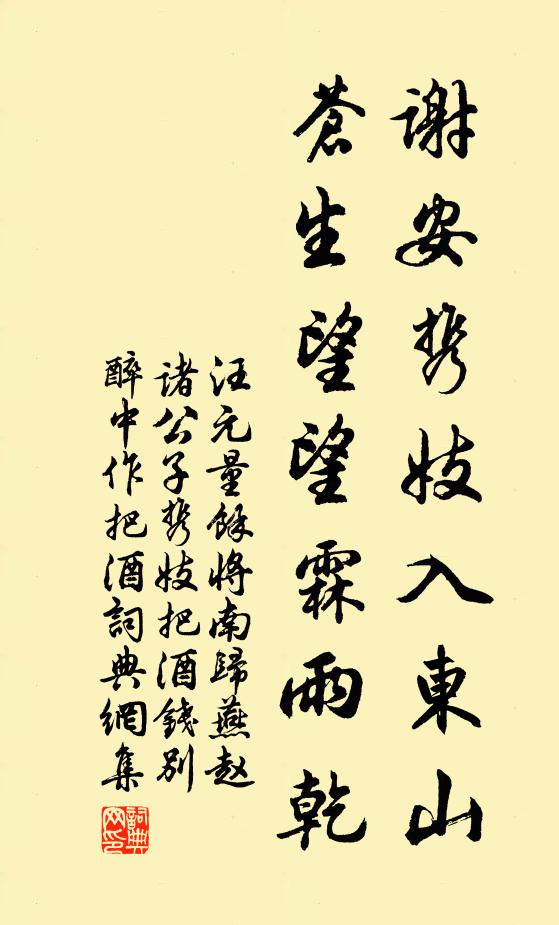 謝安携妓入東山
蒼生望望霖雨乾
汪元量餘將南歸燕赵
諸公子携妓把酒錢别
醉中作把酒詞典網集
詞典网印